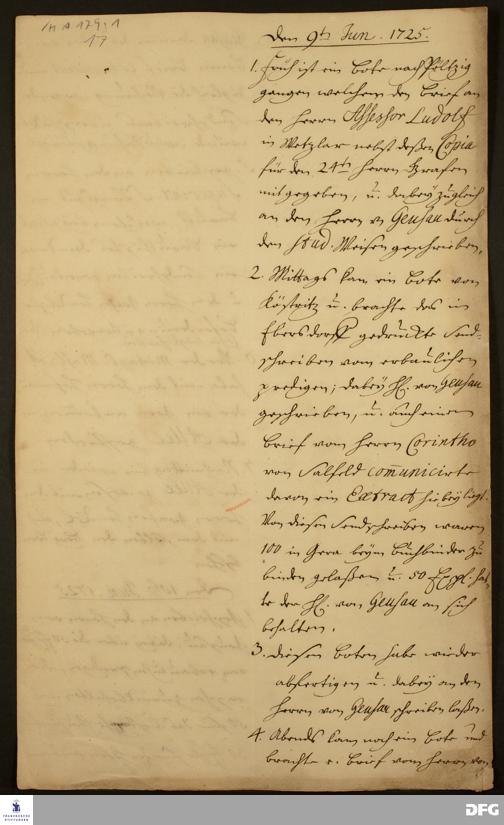 H A 179:1
17
Den 9th Jun. 1725.
1. Früh ist ein bote nach Pöltzig
gangen welchem den brief an
den Herrn Assessor Ludolf
in Wetzlar nebst deßen Copia
für den 24ten Herrn Grafen
mitgegeben, u. dabey zugleich
an den Herrn v. Geusau durch
den stud. Weisen geschrieben.
2. Mittags kam ein bote von
Köstritz u. brachte das in
Ebersdorff gedruckte Send-
schreiben vom erbaulichen
predigen; dabey H. von Geusau
geschrieben, u. auch einen
brief vom Herrn Corintho
von Salfeld com̄uniciete
davon ein Extract hiebey liegt.
Von diesen Sendschreiben waren
100 in Gera beym buchbinder zu
binden gelaßen u. 50 Expl. hat-
te der H. von Geusau an sich
behalten.
3. Diesen boten habe wieder
abfertigen u. dabey an den
Herrn von Geusau schreiben laßen.
4. Abends kam noch ein bote und
brachte e. brief vom Herrn von
FRANCKESCHE
STIFTUNGEN
DFG